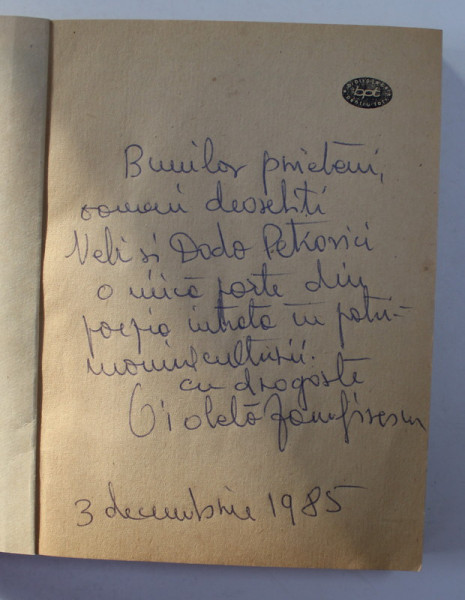 bpt
Bunilor prieteni,
oameni deosebiți
Neli si Dodo Petkovici
o mică parte din
poezia intrată în patri-
moniul culturii.
cu dragoste
Violeta Zamfirescu
3 decembrie 1985